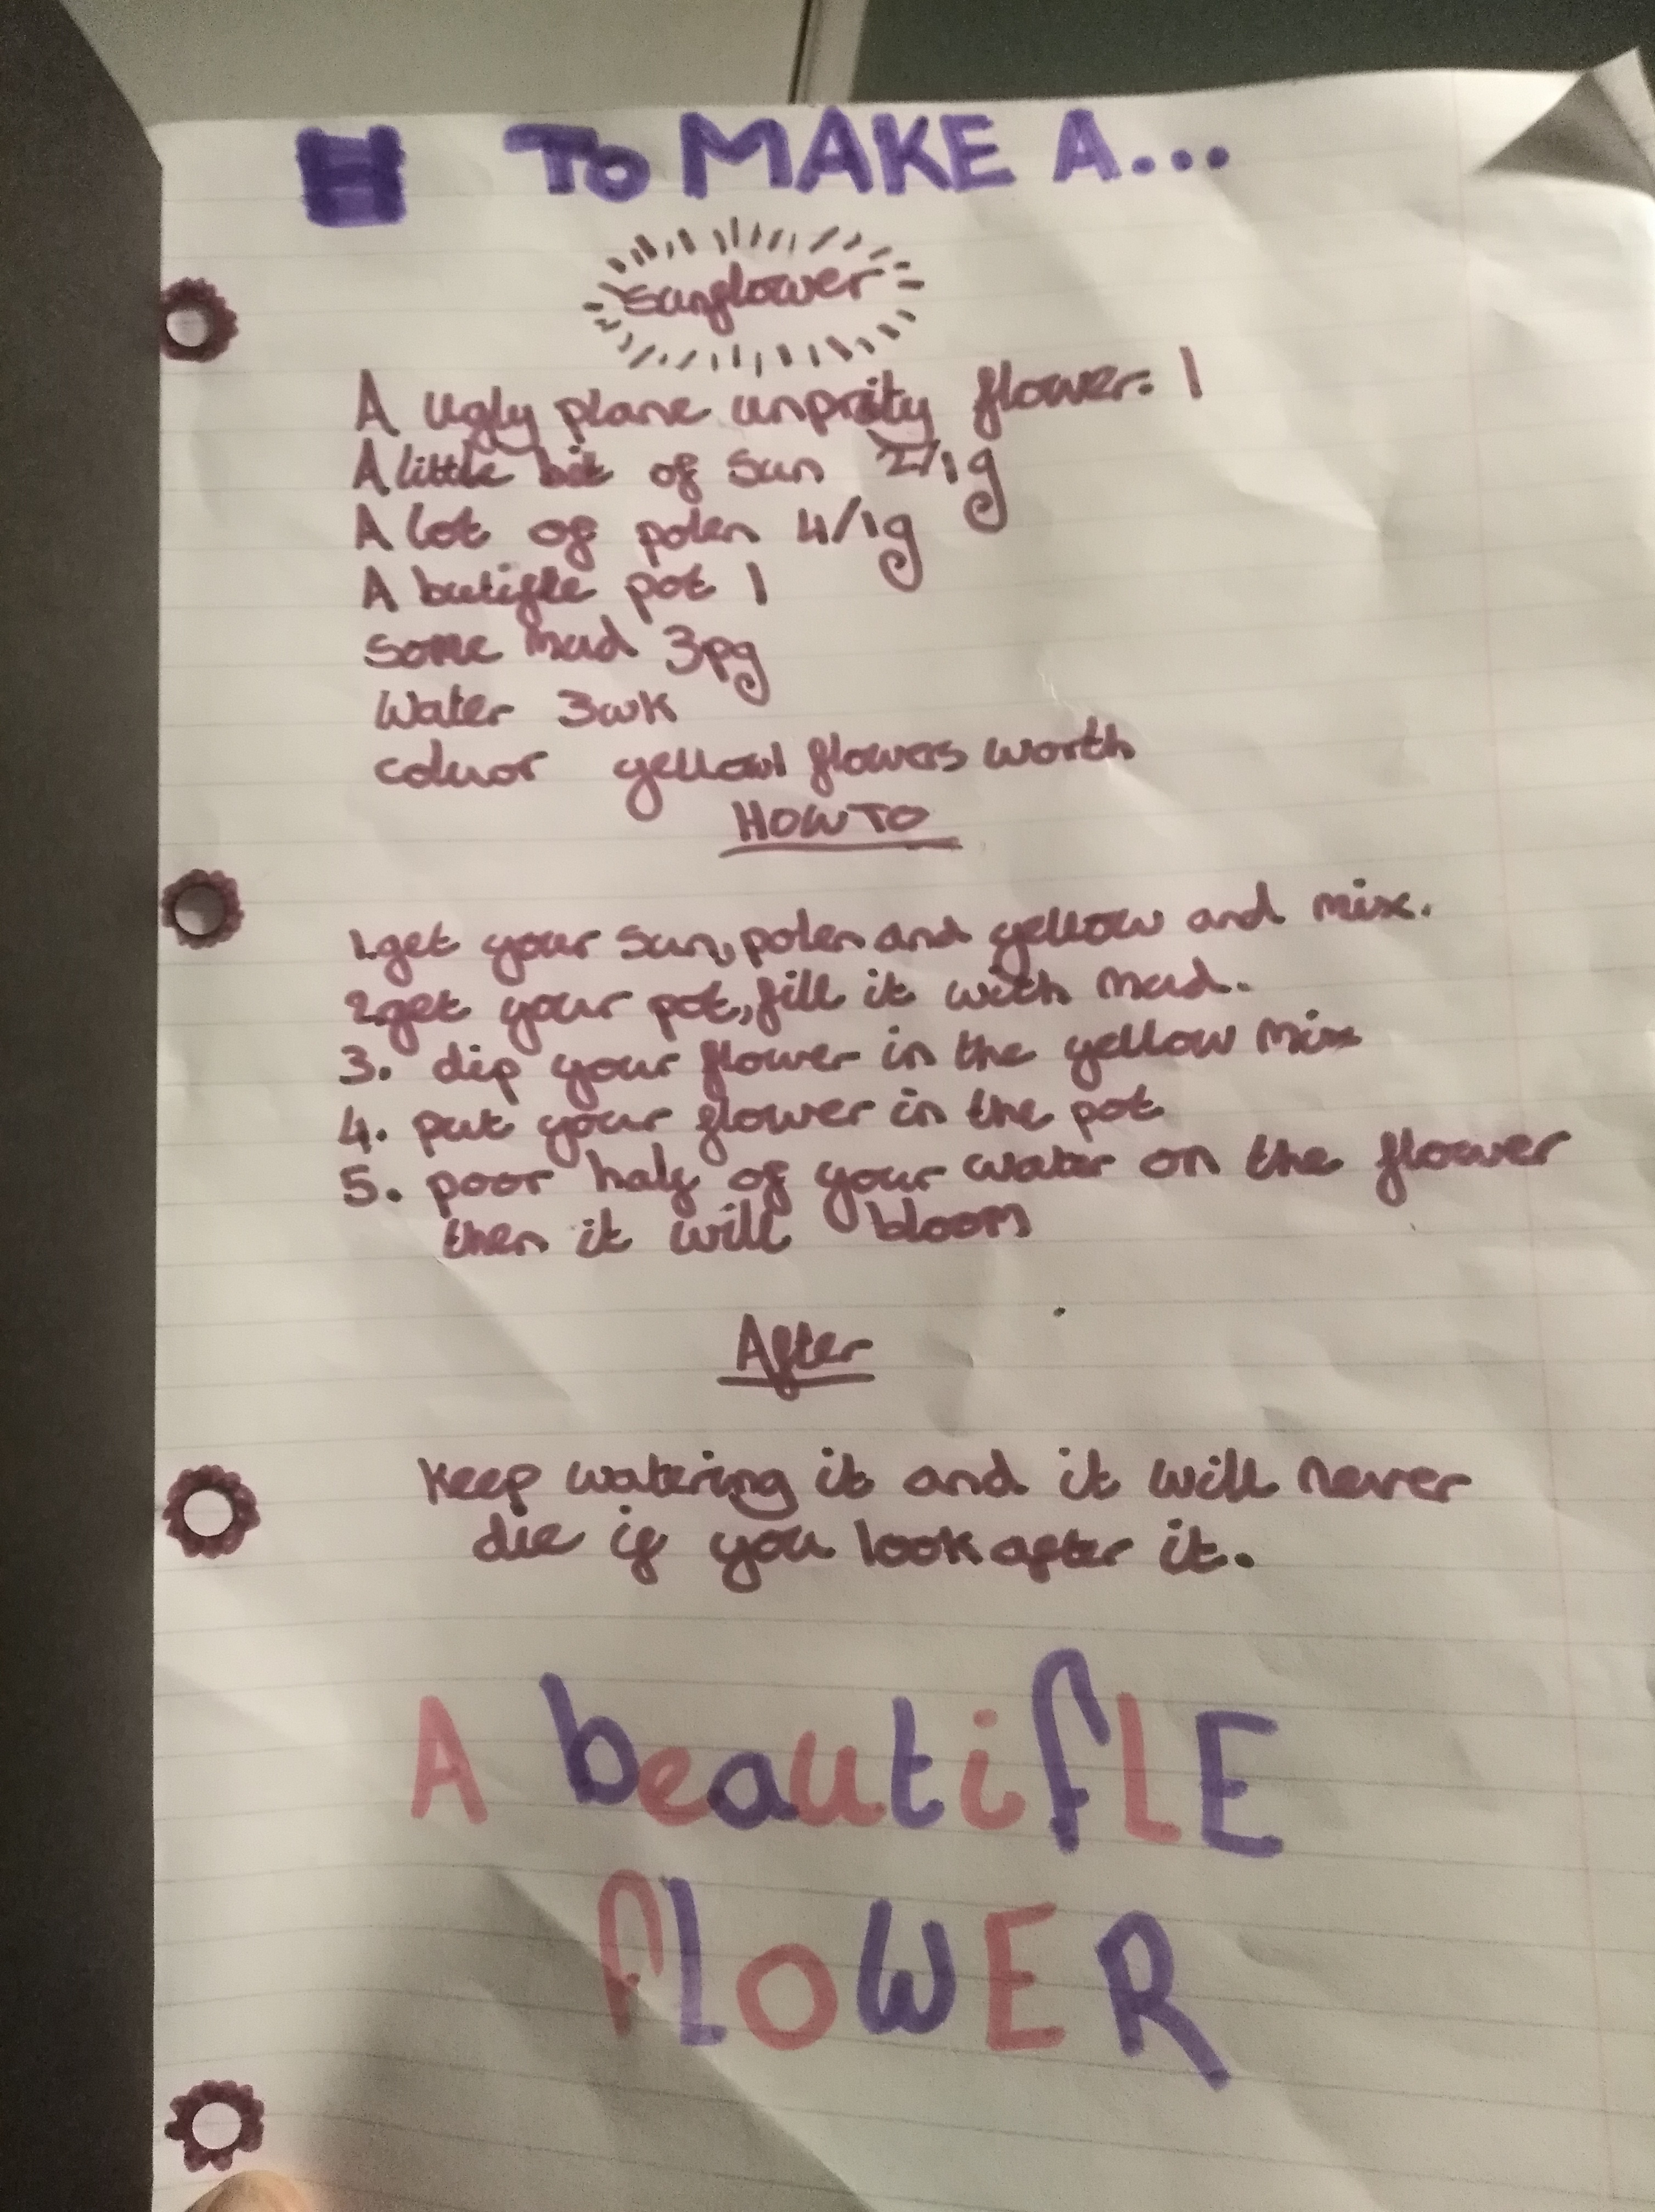 To MAKE A...
sunflower
A ugly plane unprity flower: 1
A little bit of sun 2/1g
A lot of polen 4/1g
A butifle pot 1
some mud 3pg
Water 3wk
coluor yellow flowers worth
HOW TO
1.get your sun, polen and yellow and mix.
2.get your pot, fill it with mud.
3. dip your flower in the yellow mix
4. put your flower in the pot
5. poor half of your water on the flower
then it will bloom
After
keep watering it and it will never
die if you look after it.
A beautifLE
flOWER